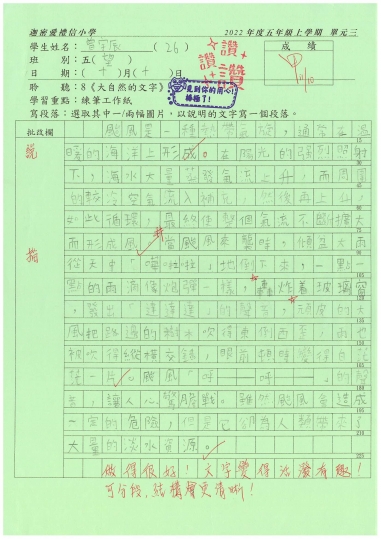 迦密愛禮信小學
2022 年度五年級上學期 單元三
學生姓名： (26)
成績
班 別：五(望)
日 期：( 十 )月( 十 )日
聆 聽：8《大自然的文字》
學習重點：練筆工作紙
寫段落：選取其中一/兩幅圖片，以說明的文字寫一個段落。
讚
讚
讚
見到你的用心！
棒極了！
批改欄
颱風是一種熱帶氣旋，通常在溫
暖的海洋上形成。在陽光的強烈照射
下，海水大量蒸發氣流上升，而周圍
的較冷空氣流入補充，然後再上升
如此循環，最終使整個氣流不斷擴大
而形成風。當颱風來襲時，傾盆大雨
從天中「嘩啦啦」地倒下來，一點一
點的雨滴像炮彈一樣，轟炸着玻璃窗
，發出「達達達」的聲音，頑皮的大
風把路邊的樹木吹得東倒西歪，雨也
被吹得縱橫交錯，眼前頓時變得白茫
茫一片。颱風「呼——呼——」的聲
音，讓人心驚膽戰。雖然颱風會造成
一定的危險，但是它卻為人類帶來了
大量的淡水資源。
做得很好！文字變得活潑有趣！
可分段，結構會更清晰！